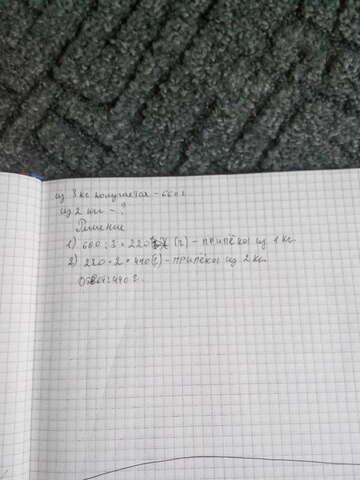 из 3 кг получается - 660 г
из 2 кг - ?
Решение
1) 660 : 3 = 220 (г) - припёка из 1 кг.
2) 220 · 2 = 440 (г) - припёка из 2 кг.
Ответ: 440 г.